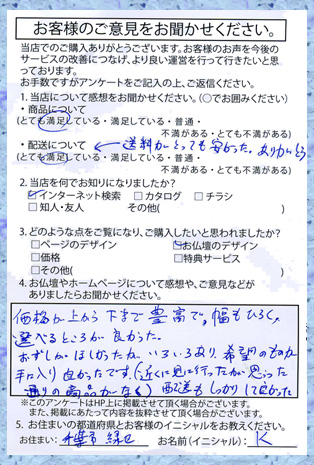 お客様のご意見をお聞かせください。
当店でのご購入ありがとうございます。お客様のお声を今後の
サービスの改善につなげ、より良い運営を行って行きたいと思
っております。
お手数ですがアンケートをご記入の上、ご返信ください。
1. 当店について感想をお聞かせください。(○でお囲みください)
・商品について
(とても満足している・満足している・普通・
不満がある・とても不満がある)
・配送について ← 送料がとっても安かった。ありがとう
(とても満足している・満足している・普通・
不満がある・とても不満がある)
2. 当店を何でお知りになりましたか?
☑インターネット検索 □カタログ □チラシ
□知人・友人 その他( )
3. どのような点をご覧になり、ご購入したいと思われましたか?
□ページのデザイン ☑お仏壇のデザイン
□価格 □特典サービス
□その他( )
4. お仏壇やホームページについて感想や、ご意見などが
ありましたらお聞かせください。
価格が上から下まで豊富で。幅もひろく、
選べるところが良かった。
おずしがほしかったが、いろいろあり、希望のものが
手に入り良かったです。(近くに見に行ったが思った
通りの商品がなく) 配送もしっかりして良かった
※このアンケートはHP上に掲載させて頂く場合がございます。
また、掲載にあたって内容を抜粋させて頂く場合がございます。
5. お住まいの都道府県とお客様のイニシャルをお教えください。
お住まい: 千葉市 緑区 お名前(イニシャル): K